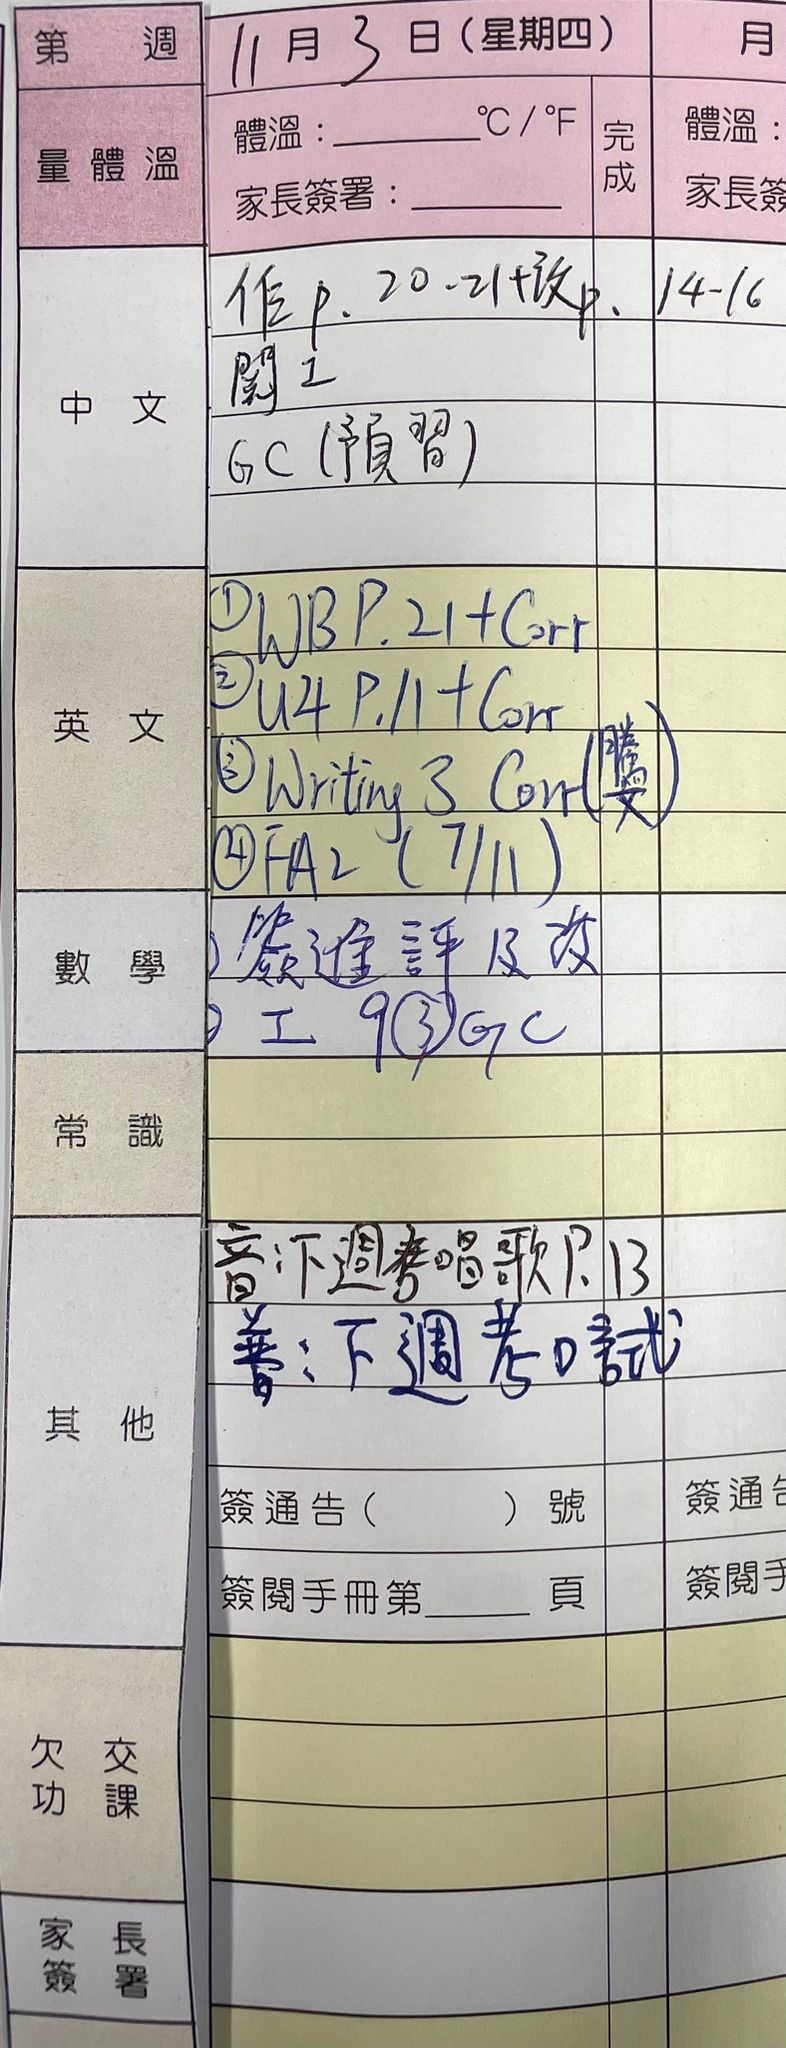 第 週
11月3日(星期四)
月
量體溫
體溫：______°C/°F
完成
體溫：
家長簽署：______
家長簽
中文
作p. 20-21+改p. 14-16
閱工
GC (預習)
英文
①WB P.21+Corr
②U4 P.11+Corr
③Writing 3 Corr(謄)
④FA2 (7/11)
數學
簽進評及改
工 9③GC
常識
其他
音:下週考唱歌P.13
普:下週考口試
簽通告( )號
簽通告
簽閱手冊第____頁
簽閱手
欠交功課
家長簽署